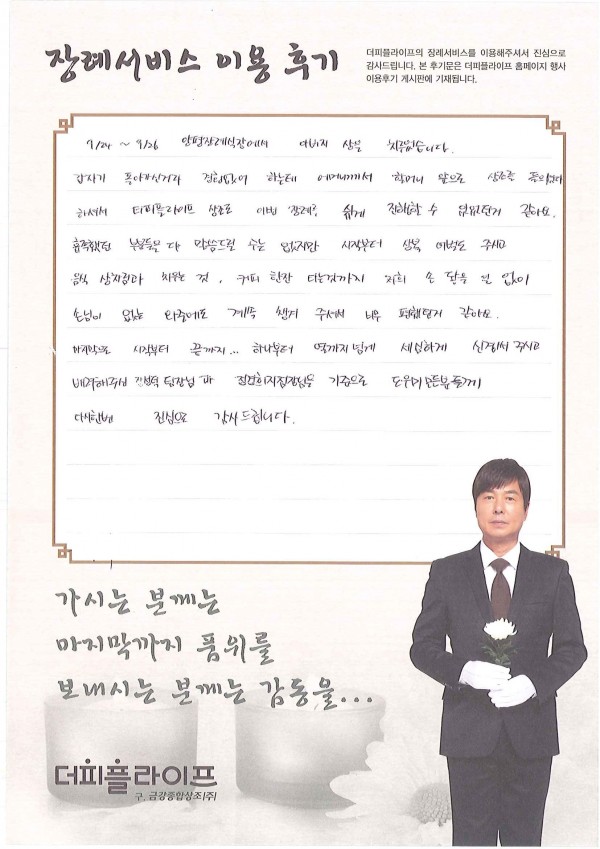 장례서비스 이용 후기
더피플라이프의 장례서비스를 이용해주셔서 진심으로
감사드립니다. 본 후기문은 더피플라이프 홈페이지 행사
이용후기 게시판에 기재됩니다.
9/24 ~ 9/26 양평장례식장에서 아버지 상을 치루었습니다.
갑자기 돌아가신거라 경험없이 하는데 어머니께서 할머니 앞으로 상조를 들으셨다
하셔서 더피플라이프 상조로 이번 장례를 쉽게 진행할 수 있었던거 같아요.
흡족했던 부분들을 다 말씀드릴 수는 없지만 시작부터 상복 여벌도 주시고
음식 상차림과 치우는 것, 커피 한잔 타는것까지 저희 손 닿을 일 없이
손님이 없는 와중에도 계속 챙겨 주셔서 너무 편했던거 같아요.
마지막으로 시작부터 끝까지... 하나부터 열까지 넘게 세심하게 신경써 주시고
배려해주신 팀장님과 을 기준으로 도우미 모든분들께
다시한번 진심으로 감사드립니다.
가시는 분께는
마지막까지 품위를
보내시는 분께는 감동을...
더피플라이프
구. 금강종합상조(주)